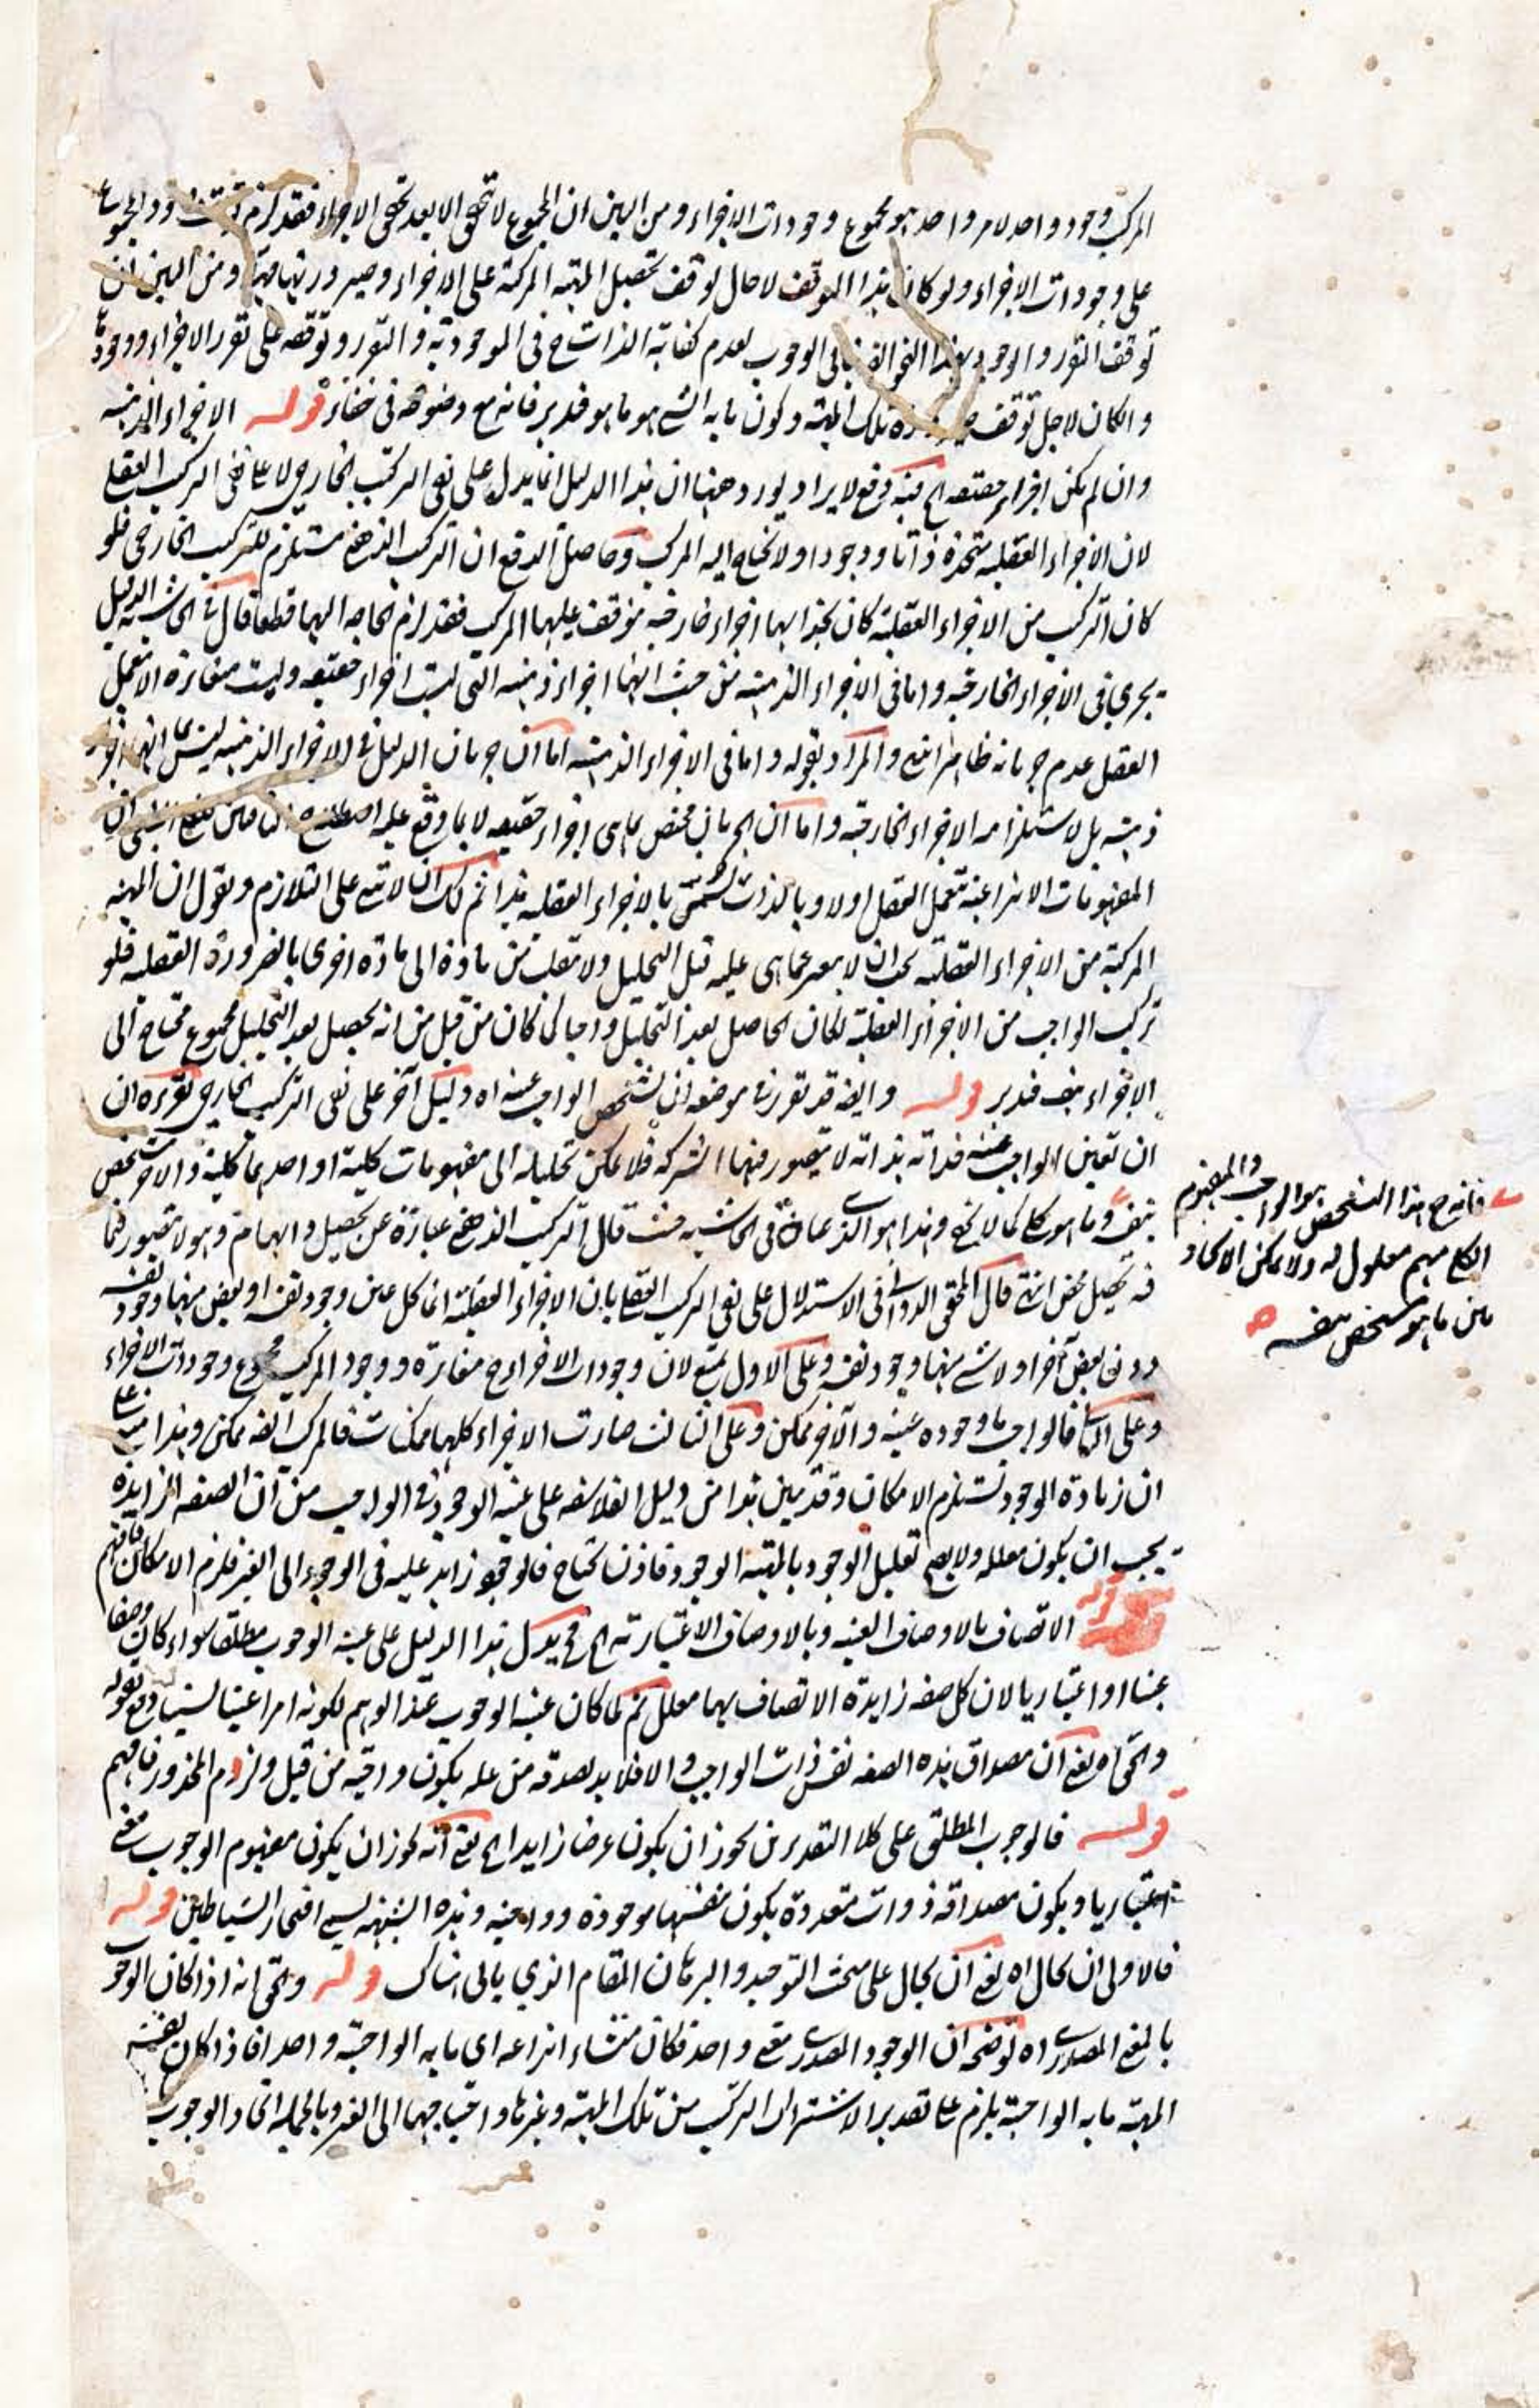 المركب وجود واحد لامر واحد هو مجموع وجودات الاجزاء ومن البين ان المجموع لا تحقق الا بعد تحقق الاجزاء فقد لزم وجود المجموع
على وجودات الاجزاء ولو كان هذا التوقف لاحال توقف تحصيل المهية المركبة على الاجزاء وصيرورتها مهية ومن البين ان
توقف التقرر والوجود بهذا النحو الى الوجوب لعدم كفاية الذات ح في الموجودية والتقرر وتوقفه على تقرر الاجزاء ووجودها
والكان لاجل توقف صيرورة تلك المهية وكون ما به الشئ هو ما هو فتدبر فانه مع وضوحه في خفاء قوله الاجزاء الذهنية
وان لم يكن اجزاء حقيقة الخ فيه دفع لايراد يورد ههنا ان هذا الدليل انما يدل على نفى التركيب الخارجى لا على نفى التركيب العقلى
لان الاجزاء العقلية متحدة ذاتا ووجودا ولا تحتاج اليه المركب وحاصل الدفع ان التركيب الذهنى مستلزم للتركيب الخارجى فلو
كان التركيب من الاجزاء العقلية كان بحذائها اجزاء خارجية موقف عليها المركب فقد لزم الحاجة اليها قطعا قال في الحاشية الدليل
يجرى في الاجزاء الخارجية واما في الاجزاء الذهنية من حيث انها اجزاء ذهنية التى ليست اجزاء حقيقة وليست مغائرة الا بتعمل
العقل عدم جريانه ظاهر انتهى والمراد بقوله واما في الاجزاء الذهنية اما ان جريان الدليل في الاجزاء الذهنية ليس بما انها اجزاء
ذهنية بل لاستلزامه الاجزاء الخارجية واما ان الجريان مختص بما هى اجزاء حقيقة لا بما وقع عليه
المفهومات الانتزاعية بتعمل العقل اولا وبالذات تسمى بالاجزاء العقلية هذا ثم لك ان لا تبنى على التلازم وتقول ان المهية
المركبة من الاجزاء العقلية يجب ان لا يتغير عما هى عليه قبل التحليل ولا تنقلب من مادة الى مادة اخرى بالضرورة العقلية فلو
تركب الواجب من الاجزاء العقلية لكان الحاصل بعد التحليل واجبا كما كان من قبل من انه يحصل بعد التحليل مجموع محتاج الى
الاجزاء هف فتدبر قوله وايضا قد تقرر في موضعه ان تشخص الواجب عينه اه دليل آخر على نفى التركيب الخارجى تقريره ان
ان تعين الواجب عينه فذاته بذاته لا يتصور فيها الشركة فلا يمكن تحليله الى مفهومات كلية او احدهما كلية والآخر متشخص
بنفسه وما هو كلى كما لا يخفى وهذا هو الذى عناه في الحاشية حيث قال التركيب الذهنى عبارة عن تحصيل وابهام وهو لا يتصور فيما
فيه تحصيل محض انتهى قال المحقق الدوانى في الاستدلال على نفى التركيب العقلى بان الاجزاء العقلية اما كل عين وجود نفسه او بعض منها وجود نفسه
دون بعض آخر او لا شئ منها وجود نفسه وعلى الاول يمتنع لان وجودات الاجزاء ح مغائرة ووجود المركب مجموع وجودات الاجزاء
وعلى الثانى فالواجب ما وجوده عينه والآخر ممكن وعلى الثالث صارت الاجزاء كلها ممكنات فالمركب ايضا ممكن وهذا مبنى على
ان زيادة الوجود تستلزم الامكان وقد يبين هذا من دليل الفلاسفة على عينية الوجود في الواجب من ان الصفة الزايدة
يجب ان يكون معللة ولا يصح تعليل الوجود بالمهية الوجود فاذن تحتاج فالوجود زايد عليه في الوجود الى الغير فلزم الامكان فافهم
قوله الاتصاف بالاوصاف العينية وبالاوصاف الاعتبارية الخ فح يدل هذا الدليل على عينية الوجوب مطلقا سواء كان وصفا
عينيا او اعتباريا لان كل صفة زايدة الاتصاف بها معلل ثم لما كان عينية الوجوب عند الوهم لكونه امرا عينيا دفع بقوله
والحق اه يعنى ان مصداق هذه الصفة نفس ذات الواجب والا فلا بد لصدقه من علة يكون واجبة من قبل ولزم المحذور فافهم
قوله فالوجوب المطلق على كلا التقديرين يجوز ان يكون عرضا زايدا الخ يعنى انه يجوز ان يكون مفهوم الوجوب معنى
اعتباريا ويكون مصداقه ذوات متعددة يكون بنفسها موجودة وواجبة وهذه الشبهة يسمى افتخار الشياطين قوله
فالاولى ان يحال اه يعنى ان يحال على مبحث التوحيد والبرهان المقام الذى ياتى هناك قوله والحق انه اذا كان الوجود
بالمعنى المصدرى اه توضيحه ان الوجود المصدرى معنى واحد فكان منشاء انتزاعه اى ما به الواجبية واحدا فاذا كان نفس
المهية ما به الواجبية يلزم على تقدير الاشتراك التركيب من تلك المهية وغيرها واحتياجها الى الغير وبالجملة اتحاد الوجوب
فانه ح هذا التشخص هو الواجب والمفهوم
الكلى مبهم معلول له ولا يمكن الاتحاد
بين ما هو متشخص بنفسه